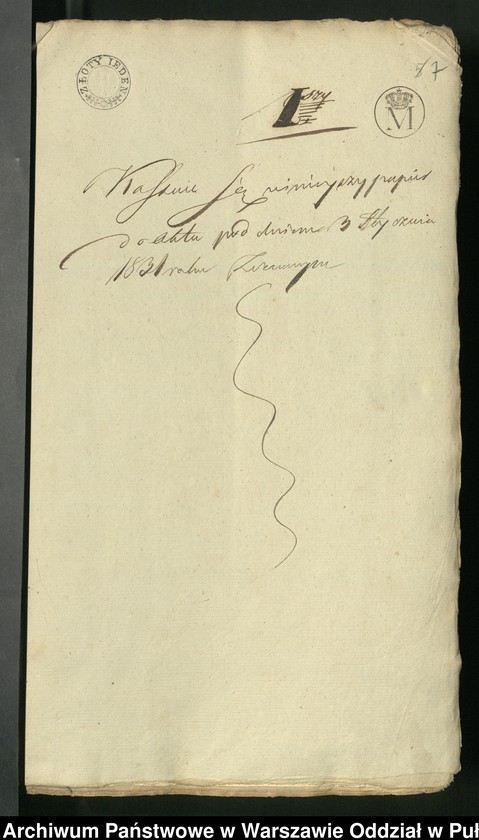 ZŁOTY JEDEN
57
Iszy
M
Kassuie Się ninieyszy papier
do Aktu pod dniem 3 Stycznia
1831 roku
Archiwum Państwowe w Warszawie Oddział w Puł